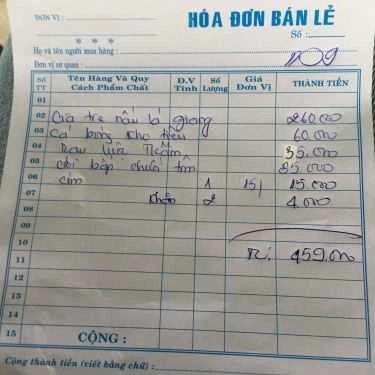 ĐƠN VỊ : HÓA ĐƠN BÁN LẺ
* * * Số :
Họ và tên người mua hàng :
Đơn vị cơ quan : 109
Số TT Tên Hàng Và Quy Cách Phẩm Chất Đ.V Tính Số Lượng Giá Đơn Vị THÀNH TIỀN
01
02 Cá tra nấu lá giang 260.000
03 Cá bống kho tiêu 60.000
04 Rau 35.000
05 bắp chuối tôm 85.000
06 cơm 1 15/ 15.000
07 Khăn 2 4.000
08
09
10
11 459.000
12
13
14
15 CỘNG :
Cộng thành tiền (viết bằng chữ) :